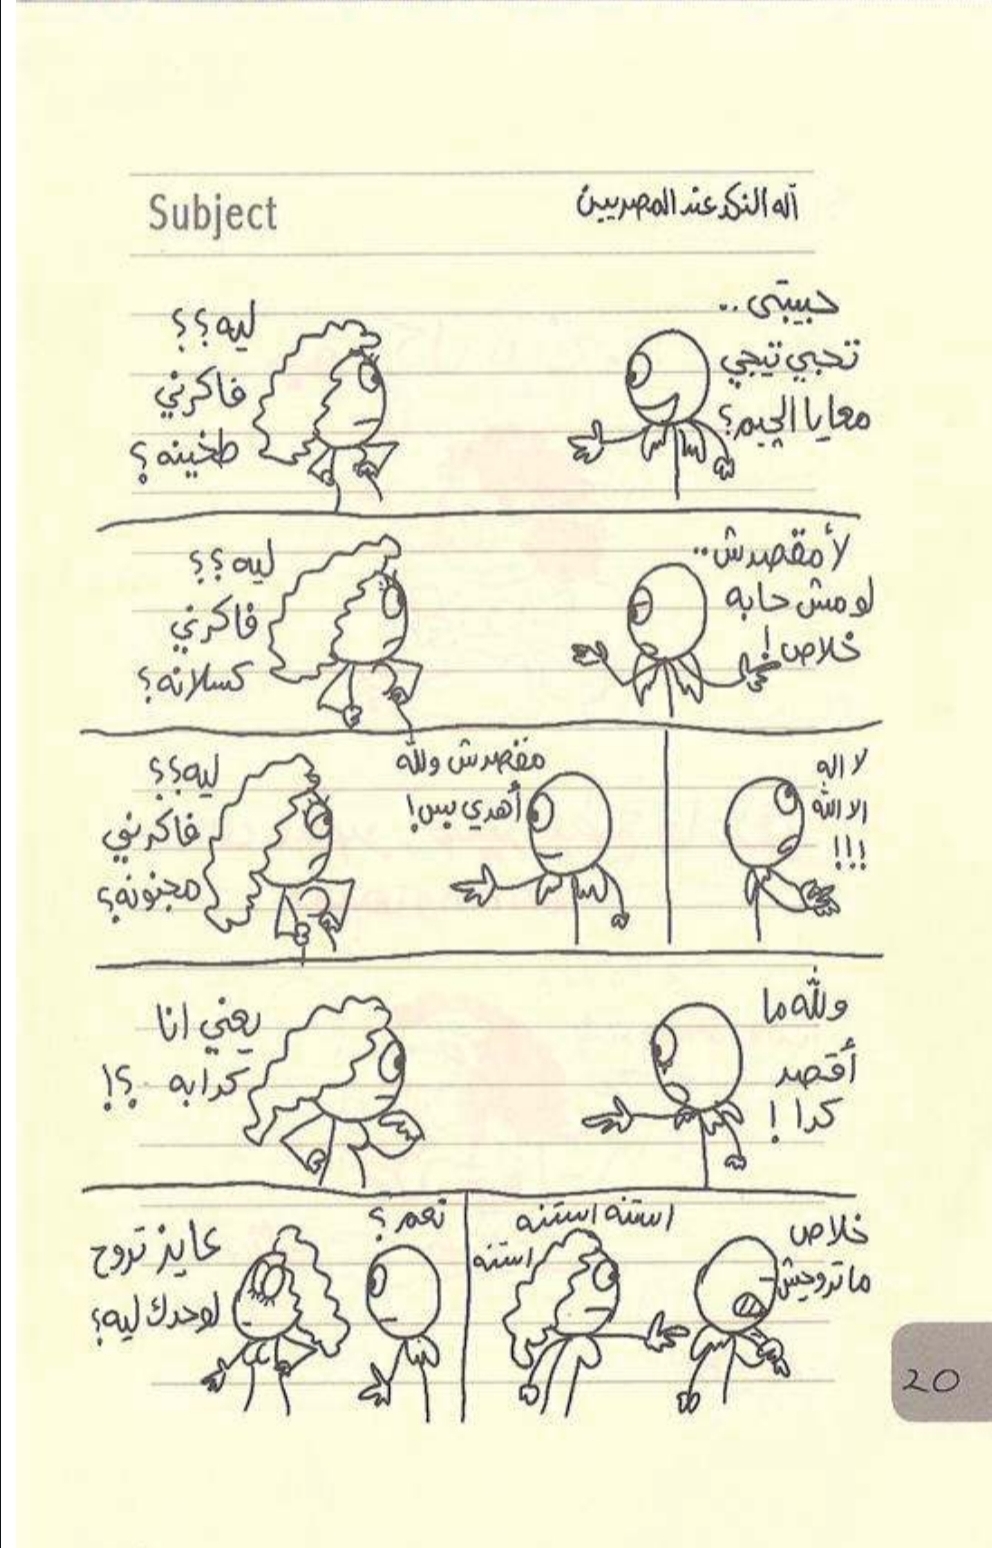 Subject
آله النكد عند المصريين
حبيبتي ..
تحبي تيجي
معايا الجيم؟
ليه؟؟
فاكرني
طخينه؟
لأ مقصدش ..
لو مش حابه
خلاص!
ليه؟؟
فاكرني
كسلانه؟
لا اله
الا الله
!!!
مقصدش ولله
أهدي بس!
ليه؟؟
فاكرني
مجنونه؟
ولله ما
أقصد
كدا!
يعني انا
كدابه ؟!
خلاص
ماتروحيش
استنه استنه
استنه
نعم؟
عايز تروح
لوحدك ليه؟
20